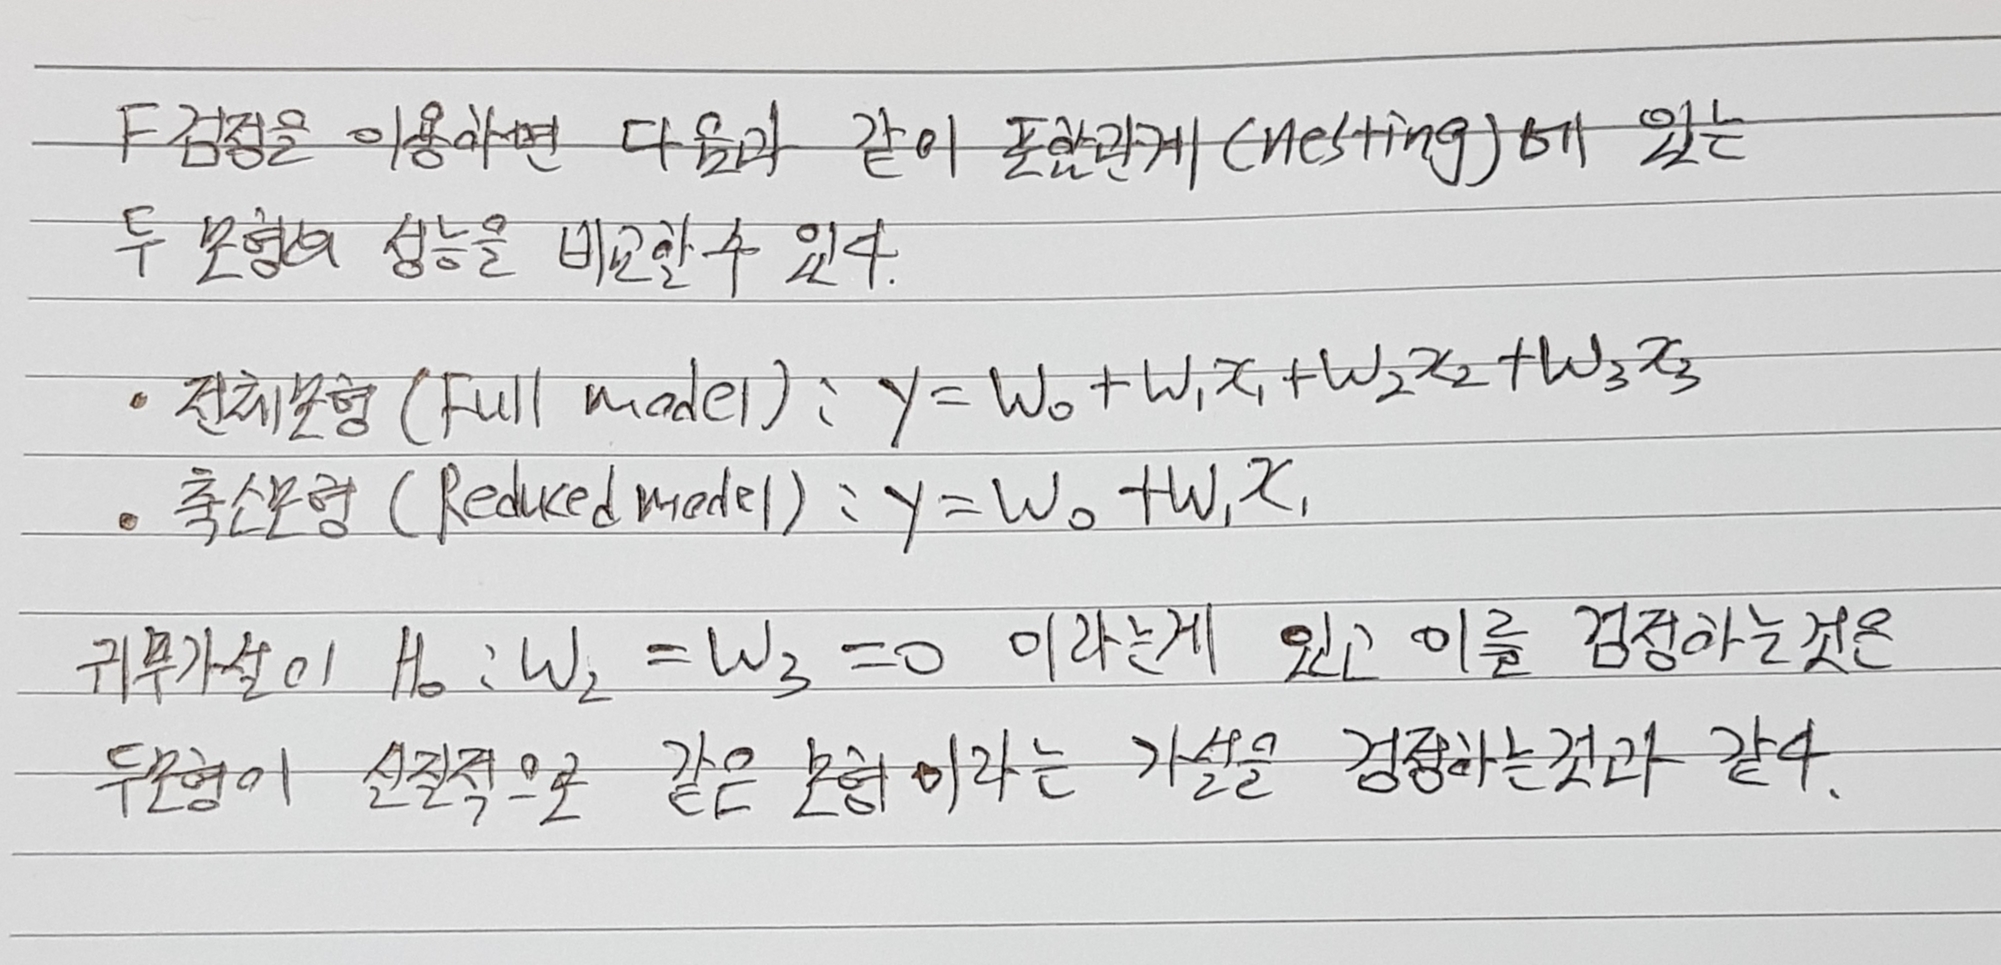 F검정을 이용하면 다음과 같이 포함관계(nesting)에 있는
두 모형의 성능을 비교할 수 있다.
• 전체모형 (Full model) : y = w₀ + w₁x₁ + w₂x₂ + w₃x₃
• 축소모형 (Reduced model) : y = w₀ + w₁x₁
귀무가설이 H₀ : w₂ = w₃ = 0 이라는게 있고 이를 검정하는것은
두모형이 실질적으로 같은 모형이라는 가설을 검정하는것과 같다.